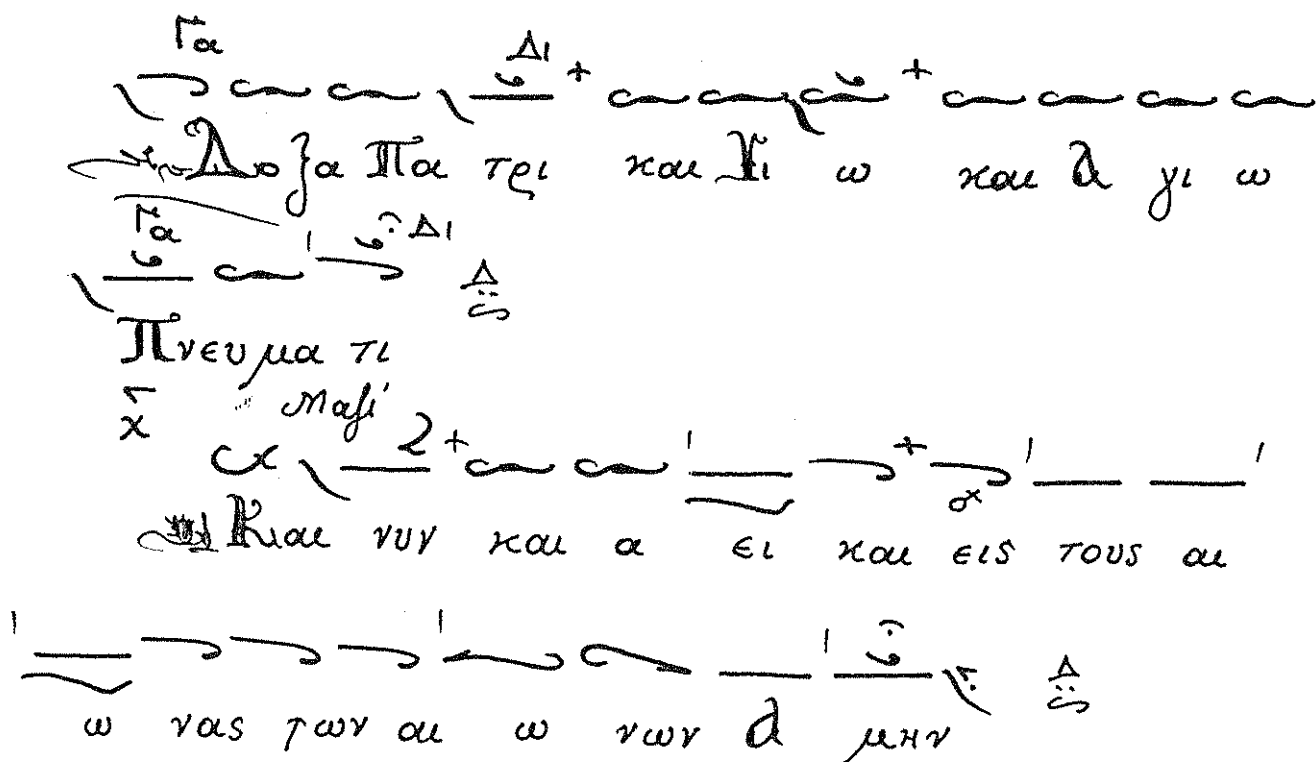 Γα Δι
Δοξα Πα τρι και Υι ω και Α γι ω
Γα Δι Δ
Πνευ μα τι
Μαζί
Και νυν και α ει και εις τους αι
Δ
ω νας των αι ω νων Α μην